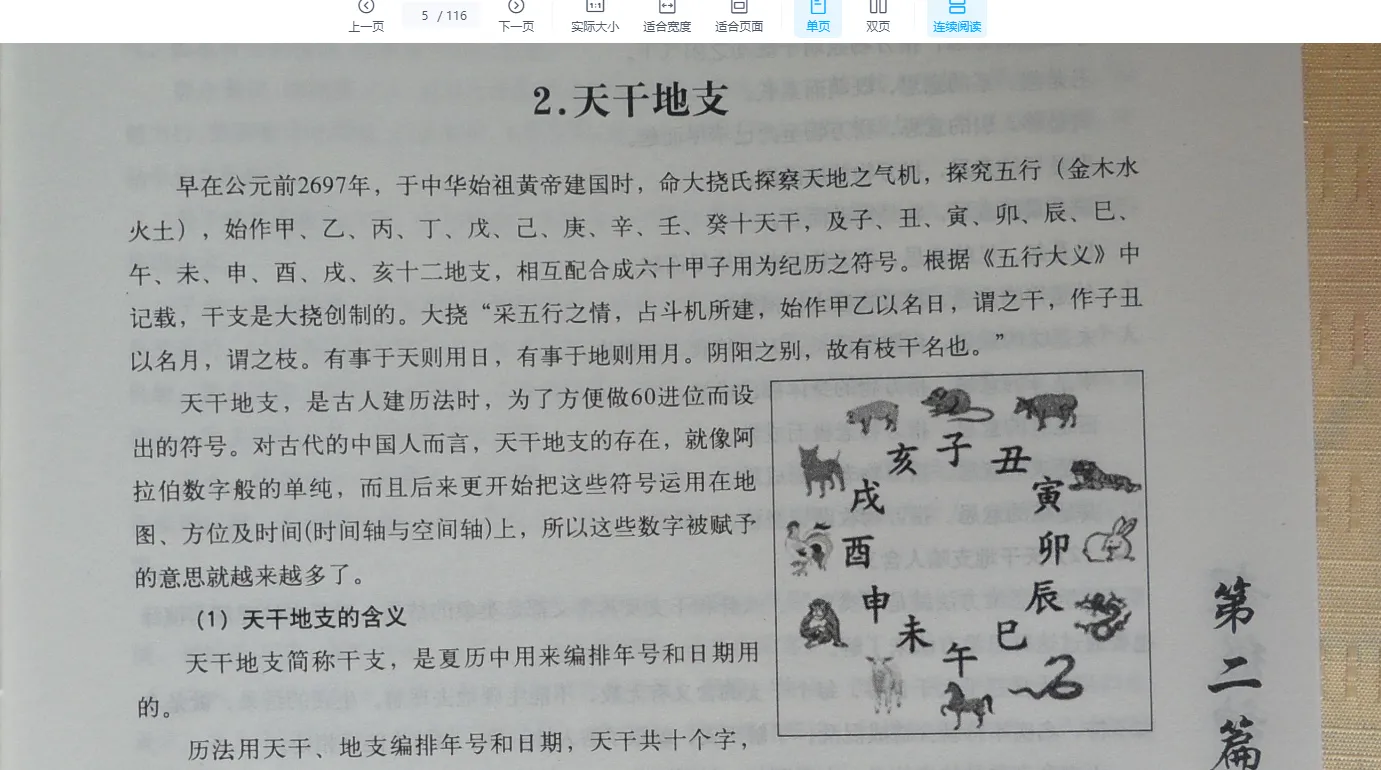 上一页 5 / 116 下一页 1:1 实际大小 适合宽度 适合页面 单页 双页 连续阅读
2.天干地支
早在公元前2697年，于中华始祖黄帝建国时，命大挠氏探察天地之气机，探究五行（金木水
火土），始作甲、乙、丙、丁、戊、己、庚、辛、壬、癸十天干，及子、丑、寅、卯、辰、巳、
午、未、申、酉、戌、亥十二地支，相互配合成六十甲子用为纪历之符号。根据《五行大义》中
记载，干支是大挠创制的。大挠“采五行之情，占斗机所建，始作甲乙以名日，谓之干，作子丑
以名月，谓之枝。有事于天则用日，有事于地则用月。阴阳之别，故有枝干名也。”
天干地支，是古人建历法时，为了方便做60进位而设
出的符号。对古代的中国人而言，天干地支的存在，就像阿
拉伯数字般的单纯，而且后来更开始把这些符号运用在地
图、方位及时间(时间轴与空间轴)上，所以这些数字被赋予
的意思就越来越多了。
（1）天干地支的含义
天干地支简称干支，是夏历中用来编排年号和日期用
的。
历法用天干、地支编排年号和日期，天干共十个字，
子
丑
寅
卯
辰
巳
午
未
申
酉
戌
亥
第二篇